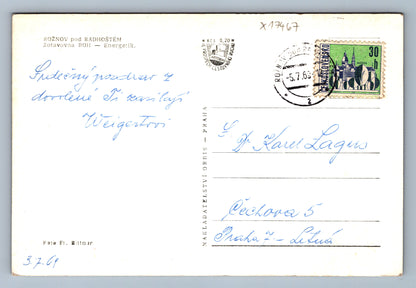 ROŽNOV pod RADHOŠTĚM
Zotavovna ROH — Energetik.
Kčs 0,20
X17467
-5.7.69
30
ČESKOSLOVENSKO
Srdečný pozdrav z
dovolené Ti zasílají
Weigertovi
Dr Karel Lagus
Čechova 5
Praha 7 - Letná
NAKLADATELSTVÍ ORBIS — PRAHA
Foto Fr.
3.7.69